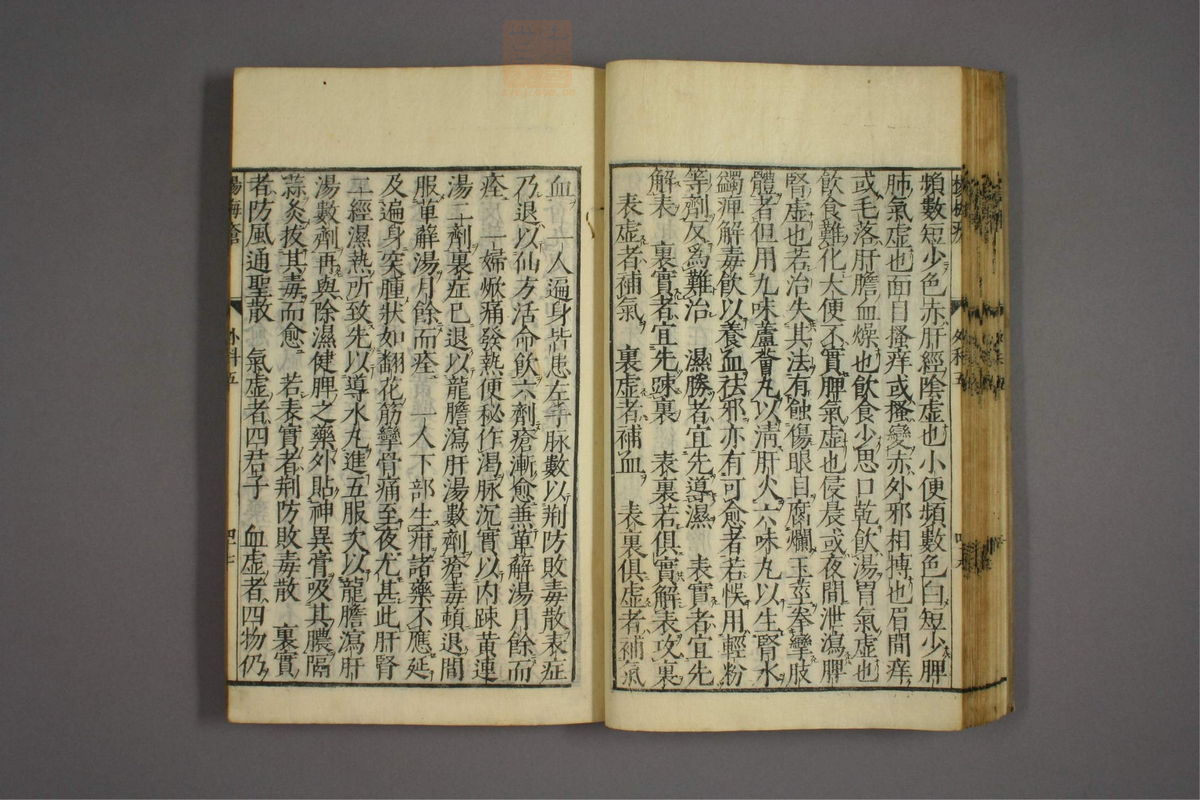 頻數短少色赤肝經陰虛也小便頻數色白短少脾
肺氣虛也面目搔痒或搔變赤外邪相搏也眉間痒
或毛落肝膽血燥也飮食少思口乾飮湯胃氣虛也
飮食難化大便不實脾氣虛也侵晨或夜間泄瀉脾
腎虛也若治失其法有蝕傷眼目腐爛玉莖拳攣肢
體者但用九味蘆薈丸以淸肝火六味丸以生腎水
蠲痺解毒飮以養血祛邪亦有可愈者若悞用輕粉
等劑反爲難治 濕勝者宜先導濕 表實者宜先
解表 裏實者宜先踈裏 表裏若俱實解表攻裏
表虛者補氣 裏虛者補血 表裏俱虛者補氣
外科五
血 一人遍身皆患左手脉數以荆防敗毒散表症
乃退以仙方活命飮六劑瘡漸愈兼萆解湯月餘而
痊 一婦焮痛發熱便秘作渴脉沉實以內踈黃連
湯二劑裏症已退以龍膽瀉肝湯數劑瘡毒頓退間
服萆薢湯月餘而痊 一人下部生疳諸藥不應延
及遍身突腫狀如翻花筋攣骨痛至夜尤甚此肝腎
二經濕熱所致先以導水丸進五服次以龍膽瀉肝
湯數劑再與除濕健脾之藥外貼神異膏吸其膿隔
蒜灸拔其毒而愈 若表實者荆防敗毒散 裏實
者防風通聖散 氣虛者四君子 血虛者四物仍
楊梅瘡 外科五